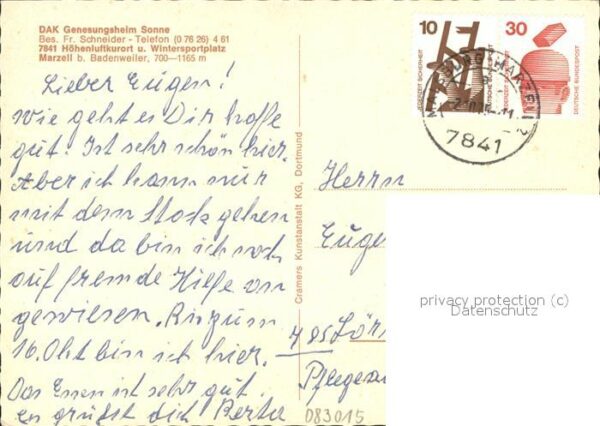 DAK Genesungsheim Sonne
Bes. Fr. Schneider - Telefon (0 76 26) 4 61
7841 Höhenluftkurort u. Wintersportplatz
Marzell b. Badenweiler, 700—1165 m
10
30
JEDERZEIT SICHERHEIT
DEUTSCHE BUNDESPOST
7841
Lieber Eugen!
wie geht es Dir hoffe
gut! Ist sehr schön hier.
Aber ich kann nur
mit dem Stock gehen
und da bin ich noch
auf fremde Hilfe an
gewiesen. Bis zum
16. Okt bin ich hier.
Das Essen ist sehr gut.
Es grüßt dich Berta
Cramers Kunstanstalt KG, Dortmund
Herrn
Euge
785 Lör
Pflege
privacy protection (c)
Datenschutz
083015